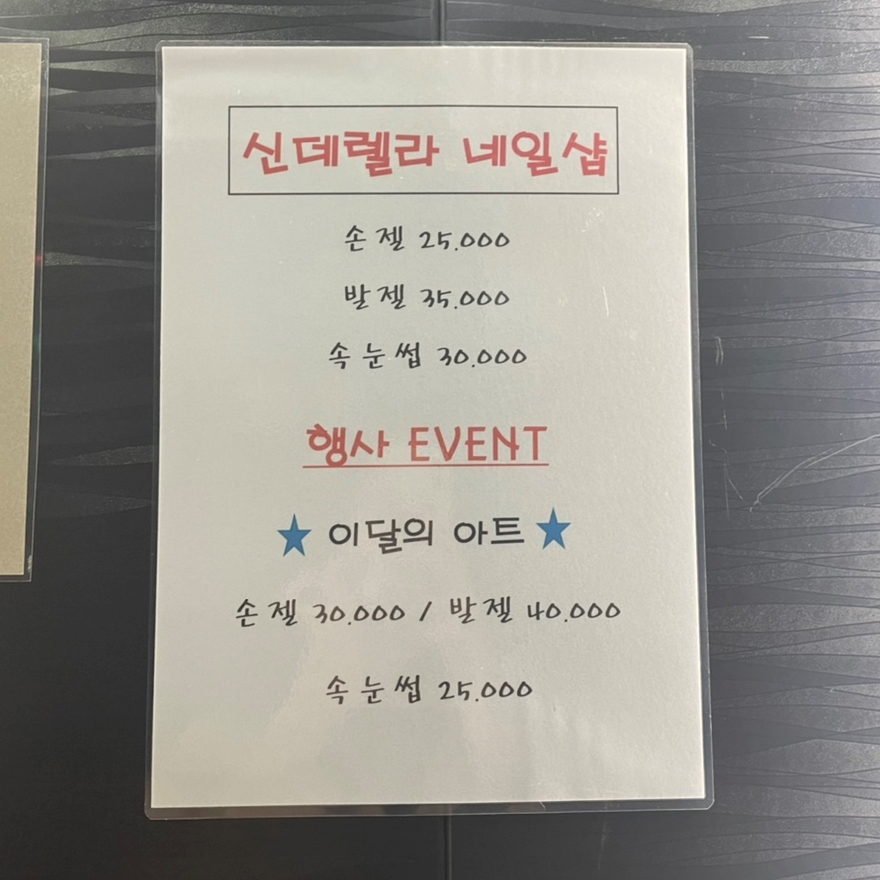 신데렐라 네일샵
손젤 25.000
발젤 35.000
속눈썹 30.000
행사 EVENT
★ 이달의 아트 ★
손젤 30.000 / 발젤 40.000
속눈썹 25.000